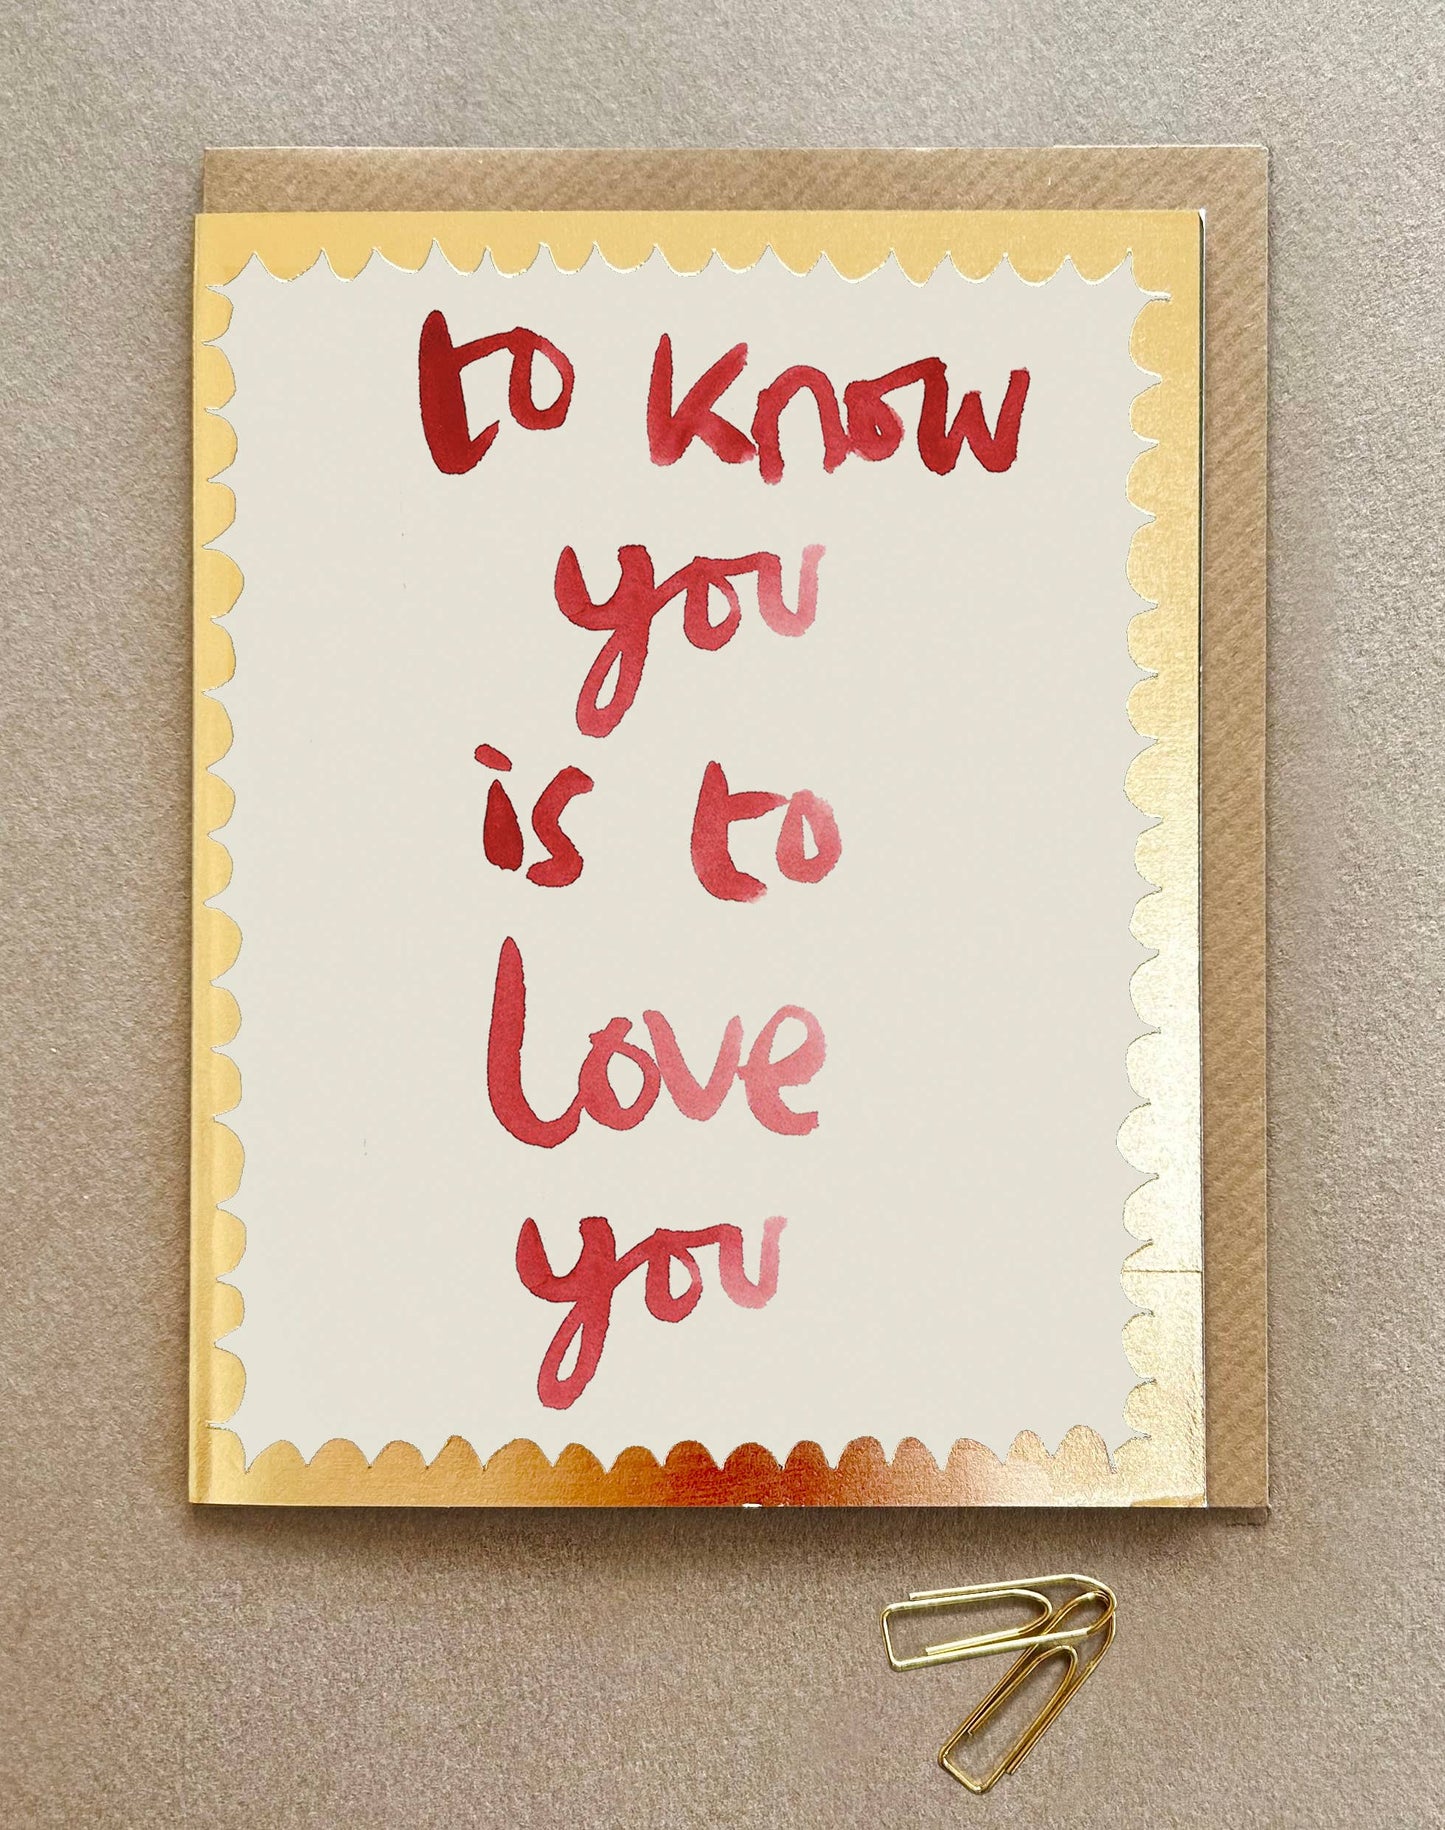 to know
you
is to
love
you